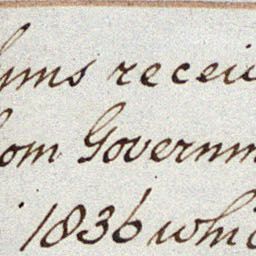 ums receiv
rom Governm
1836 whic